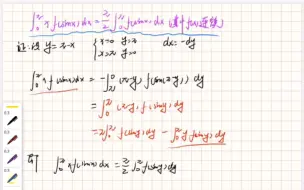 ∫₀^π x f(sinx) dx = π/2 ∫₀^π f(sinx) dx (其中f(x)连续)
证: 设 y = π-x { x=0 y=π dx = -dy
x=π y=0
∫₀^π x f(sinx) dx = -∫_π^0 (π-y) f(sin(π-y)) dy
= ∫₀^π (π-y) f(siny) dy
= π∫₀^π f(siny) dy - ∫₀^π y f(siny) dy
即 ∫₀^π x f(sinx) dx = π/2 ∫₀^π f(siny) dy